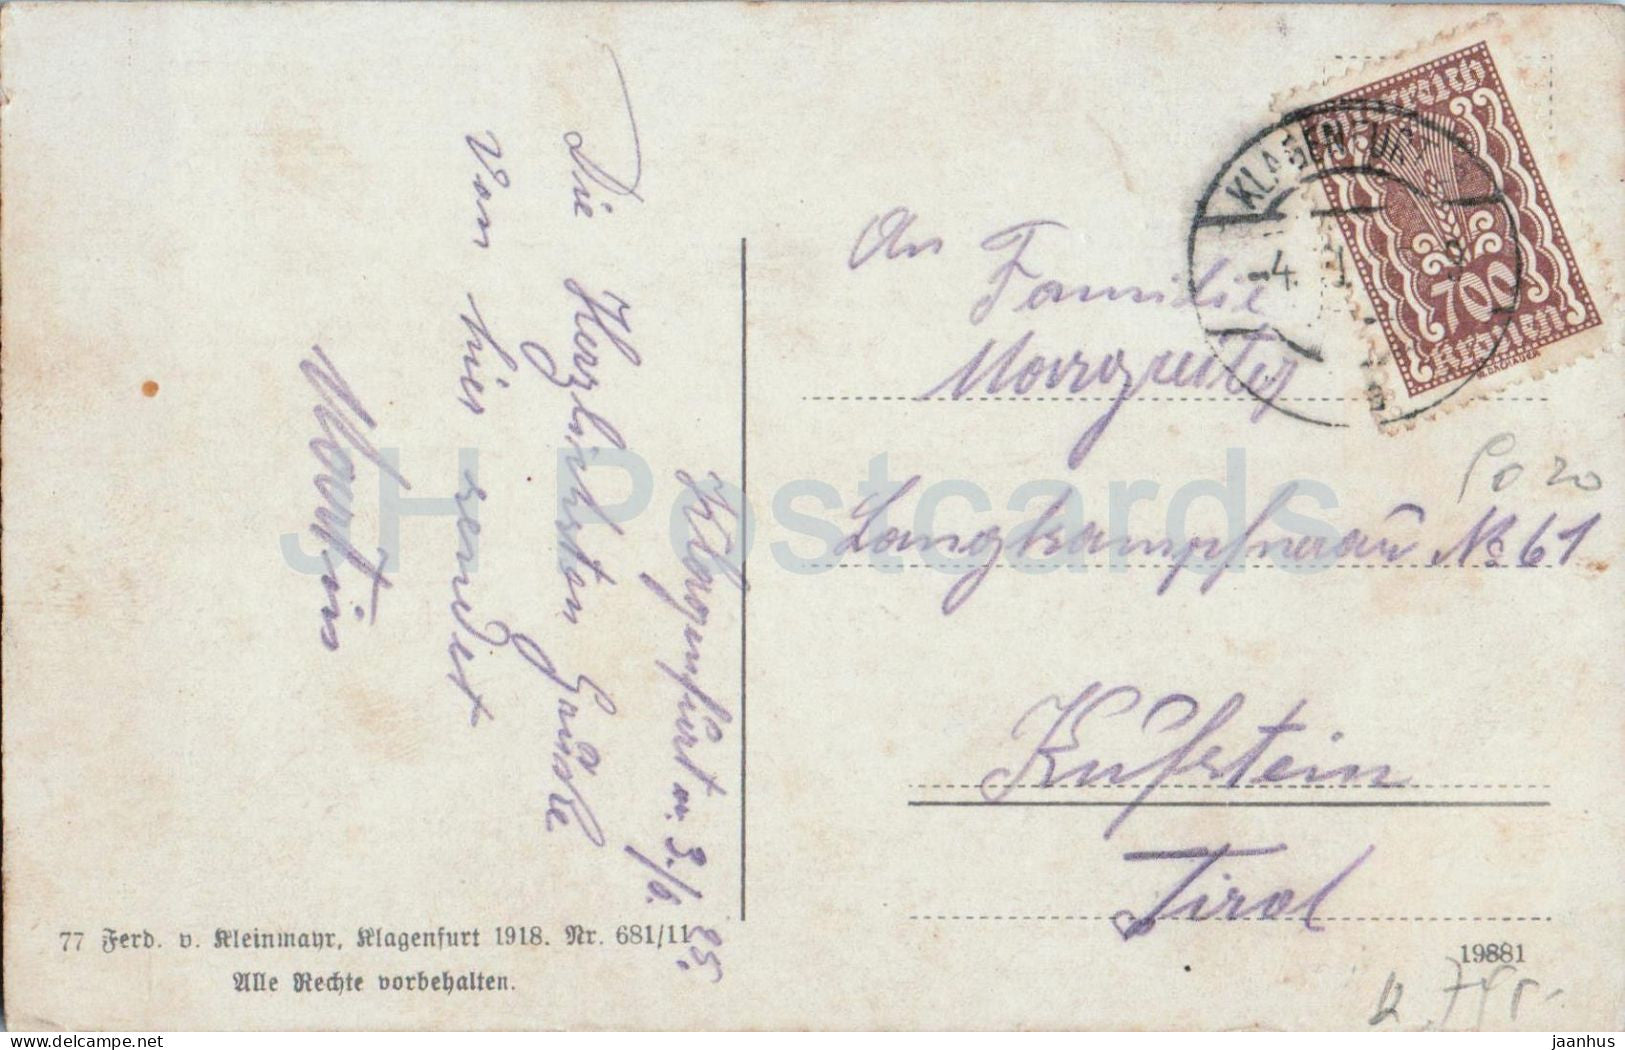 Klagenfurt am 3./6. 25.
Die Herzlichsten Grüße
von hier sendet
Martin
An
Familie
Langkampfnerau № 61
Kufstein
Tirol
Österreich
700
Kronen
W. DACHAUER
KLAGENFURT
-4.
9
Po 20
77 Ferd. v. Kleinmayr, Klagenfurt 1918. Nr. 681/11
Alle Rechte vorbehalten.
19881
JH Postcards
www.delcampe.net
jaanhus